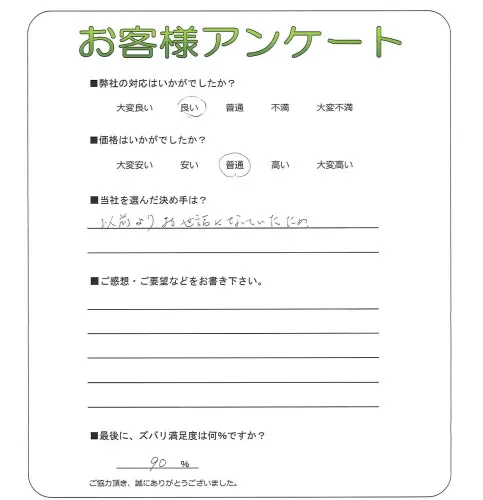 お客様アンケート
■弊社の対応はいかがでしたか？
大変良い 良い 普通 不満 大変不満
■価格はいかがでしたか？
大変安い 安い 普通 高い 大変高い
■当社を選んだ決め手は？
以前よりお世話となっていたため
■ご感想・ご要望などをお書き下さい。
■最後に、ズバリ満足度は何%ですか？
90 %
ご協力頂き、誠にありがとうございました。